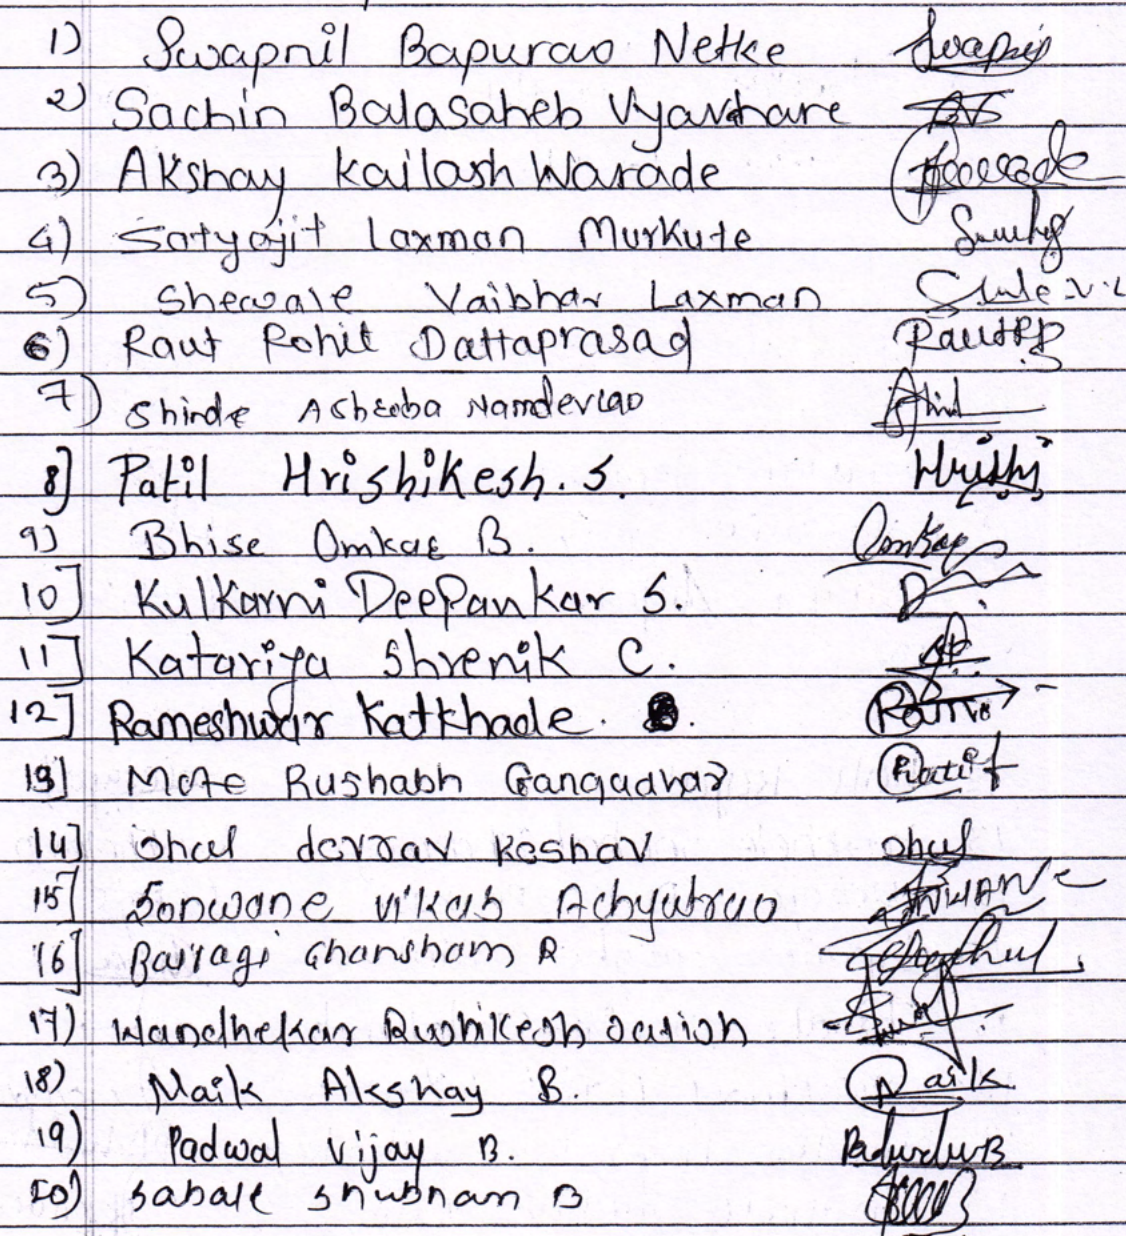 1) Swapnil Bapurao Netke
2) Sachin Balasaheb Vyavhare
3) Akshay Kailash Warade
4) Satyajit Laxman Murkute
5) Shewale Vaibhav Laxman
6) Raut Rohit Dattaprasad Raut RD
7) Shinde Namdevrao
8] Patil Hrishikesh. S. Hrishi
9) Bhise Omkar B. Omkar
10] Kulkarni Deepankar S.
11] Katariya Shrenik C.
12] Rameshwar Katkhade. Ram
13] Mote Rushabh Gangadhar
14] Ohal devrav Keshav Ohal
15] Sonwane vikas Achyutrao
16] Bairagi Ghansham R
17) Wandhekar Rushikesh Satish
18) Naik Akshay B. Naik
19) Padwal Vijay B.
20) Sabale Shubham B